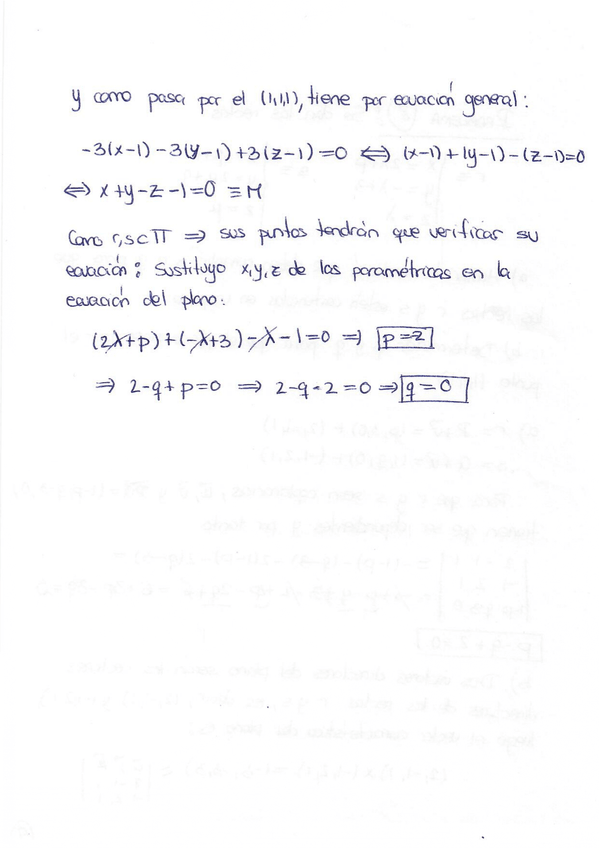 y como pasa por el (1,1,1), tiene por ecuación general:
-3(x-1)-3(y-1)+3(z-1)=0 ⟺ (x-1)+(y-1)-(z-1)=0
⟺ x+y-z-1=0 ≡ M
Como r,s⊂Π ⇒ sus puntos tendrán que verificar su
ecuación: Sustituyo x,y,z de las paramétricas en la
ecuación del plano:
(2λ+p)+(-λ+3)-λ-1=0 ⇒ p=-2
⇒ 2-q+p=0 ⇒ 2-q-2=0 ⇒ q=0